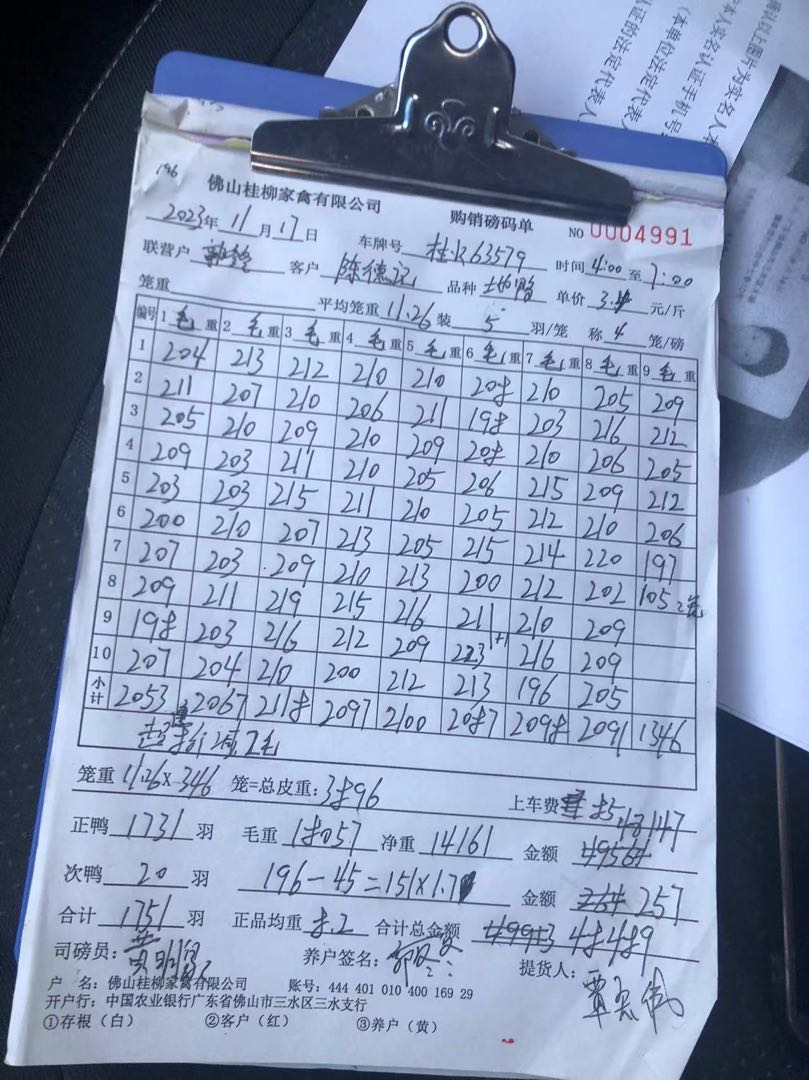 196
佛山桂柳家禽有限公司 购销磅码单 NO 0004991
2023年 11月 17日 车牌号 63579 时间 4:00 至 7:00
联营户 客户 陈德记 品种 单价 元/斤
笼重 平均笼重 11.26 装 5 羽/笼 称 4 笼/磅
编号 1 毛 重 2 毛 重 3 毛 重 4 毛 重 5 毛 重 6 毛 重 7 毛 重 8 毛 重 9 毛 重
1 204 213 212 210 210 208 210 205 209
2 211 207 210 206 211 198 203 216 212
3 205 210 209 210 209 208 210 206 205
4 209 203 211 210 205 206 215 209 212
5 203 203 215 211 210 205 212 210 206
6 200 210 207 213 205 215 214 220 197
7 207 203 209 210 213 200 212 202 105 2笼
8 209 211 219 215 216 211 210 209
9 198 203 216 212 209 223 216 209
10 207 204 210 200 212 213 196 205
小计 2053 2067 2118 2097 2100 2087 2098 2091 1346
笼重 11.26×346 笼=总皮重: 3896 上车费 85
正鸭 1731 羽 毛重 18057 净重 14161 金额 49564 48147
次鸭 20 羽 196-45=151×1.7 金额 264 257
合计 1751 羽 正品均重 8.2 合计总金额 48489
司磅员: 养户签名: 提货人:
户 名: 佛山桂柳家禽有限公司 账号: 444 401 010 400 169 29
开户行: 中国农业银行广东省佛山市三水区三水支行
①存根(白) ②客户(红) ③养户(黄)